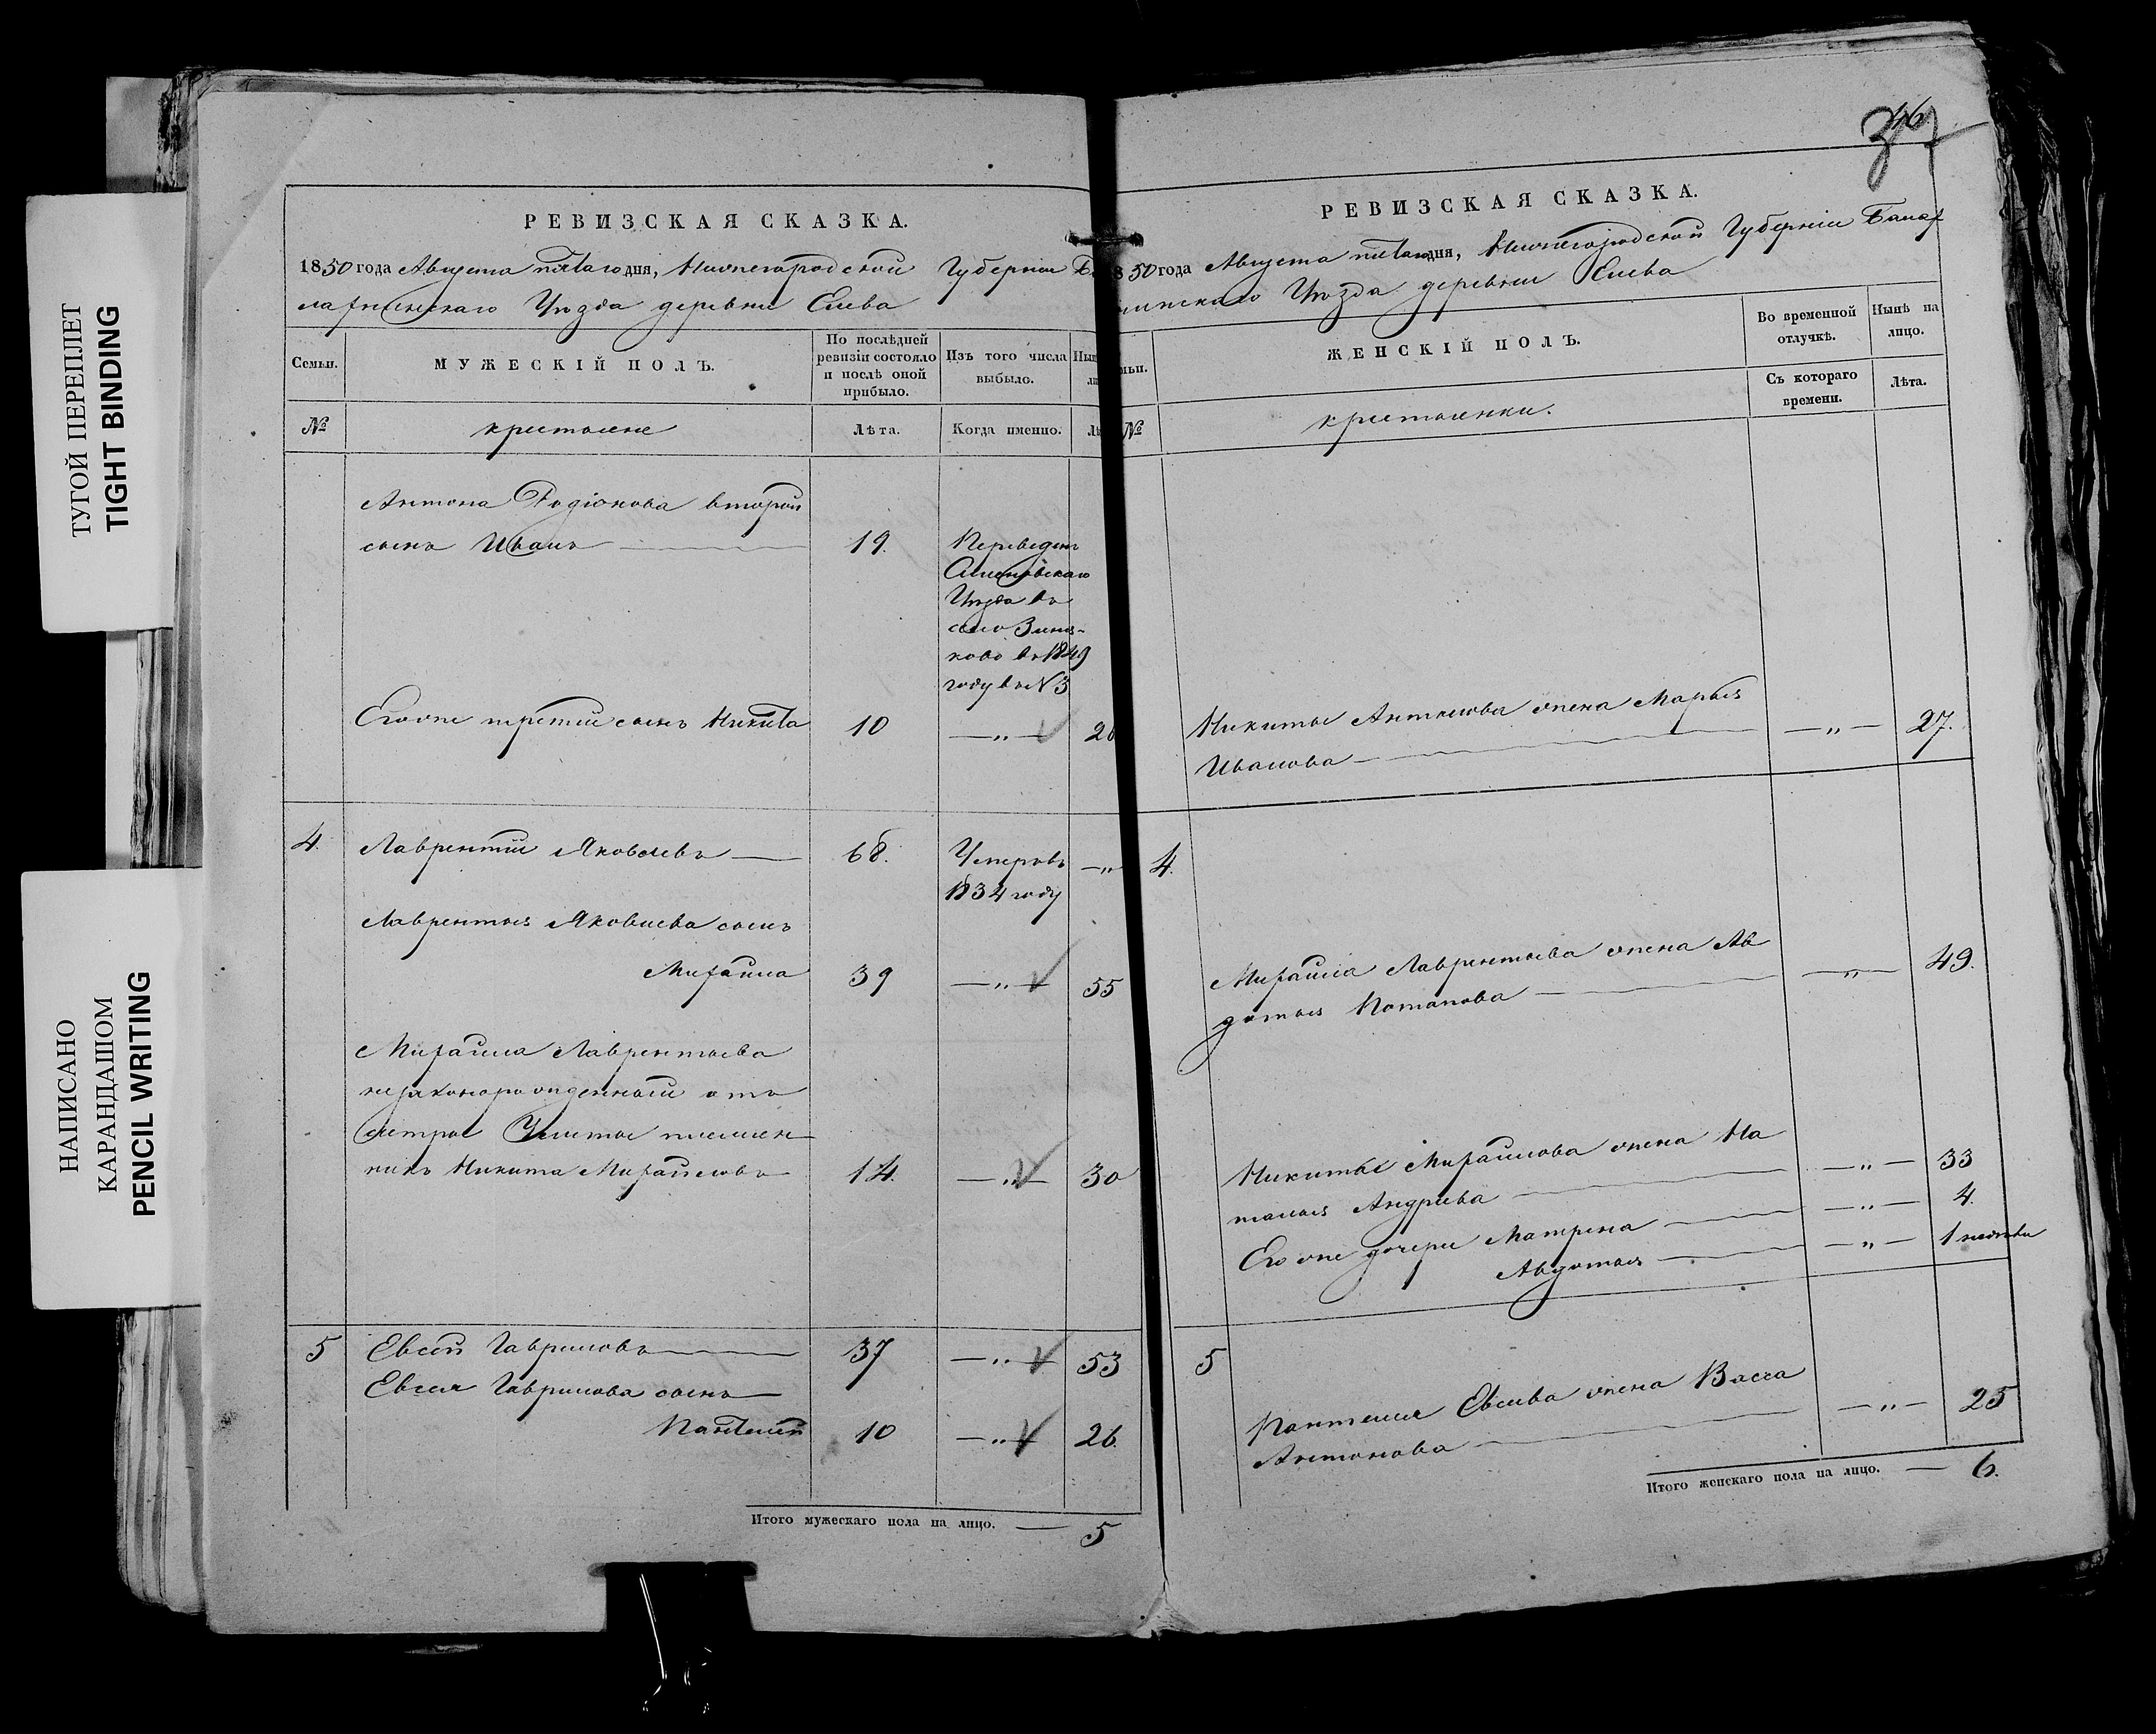 ТУГОЙ ПЕРЕПЛЕТ
TIGHT BINDING
НАПИСАНО
КАРАНДАШОМ
PENCIL WRITING
РЕВИЗСКАЯ СКАЗКА.
1850 года Августа пятаго дня, Нижегородской Губерніи Ба
лахнинскаго Уѣзда деревни Елева
Семьи.
МУЖЕСКІЙ ПОЛЪ.
По послѣдней
ревизіи состояло
и послѣ оной
прибыло.
Изъ того числа
выбыло.
№
крестьяне
Лѣта.
Когда именно.
Антона Родіонова второй
сынъ Иванъ 19.
Переведенъ
Семеновскаго
Уѣзда въ
село Зиня-
ково въ 1849
году въ № 3
Его же третій сынъ Никита 10 —„— 26
4. Лаврентій Яковлевъ 68. Умеръ въ —„
1834 году
Лаврентья Яковлева сынъ
Михайла 39 —„— 55
Михайла Лаврентьева
незаконорожденный отъ
сестры Улиты племян-
никъ Никита Михайловъ 14. —„— 30
5 Евсей Гавриловъ 37 —„— 53
Евсея Гаврилова сынъ
Пантелей 10 —„— 26.
Итого мужескаго пола на лицо. — 5
46
37
РЕВИЗСКАЯ СКАЗКА.
850 года Августа пятаго дня, Нижегородской Губерніи Балах
нинскаго Уѣзда деревни Елева
ЖЕНСКІЙ ПОЛЪ.
Во временной
отлучкѣ.
Нынѣ на
лицо.
Съ котораго
времени.
Лѣта.
№
крестьянки.
Никиты Антонова жена Марья
Иванова —„— 27.
4.
Михайла Лаврентьева жена Ав
дотья Потапова —„— 49.
Никиты Михайлова жена На
талья Андреева —„— 33
Его же дочери Матрена —„— 4.
Авдотья —„— 1 недѣли
5
Пантелея Евсеева жена Васса
Антонова —„— 25
Итого женскаго пола на лицо. — 6.